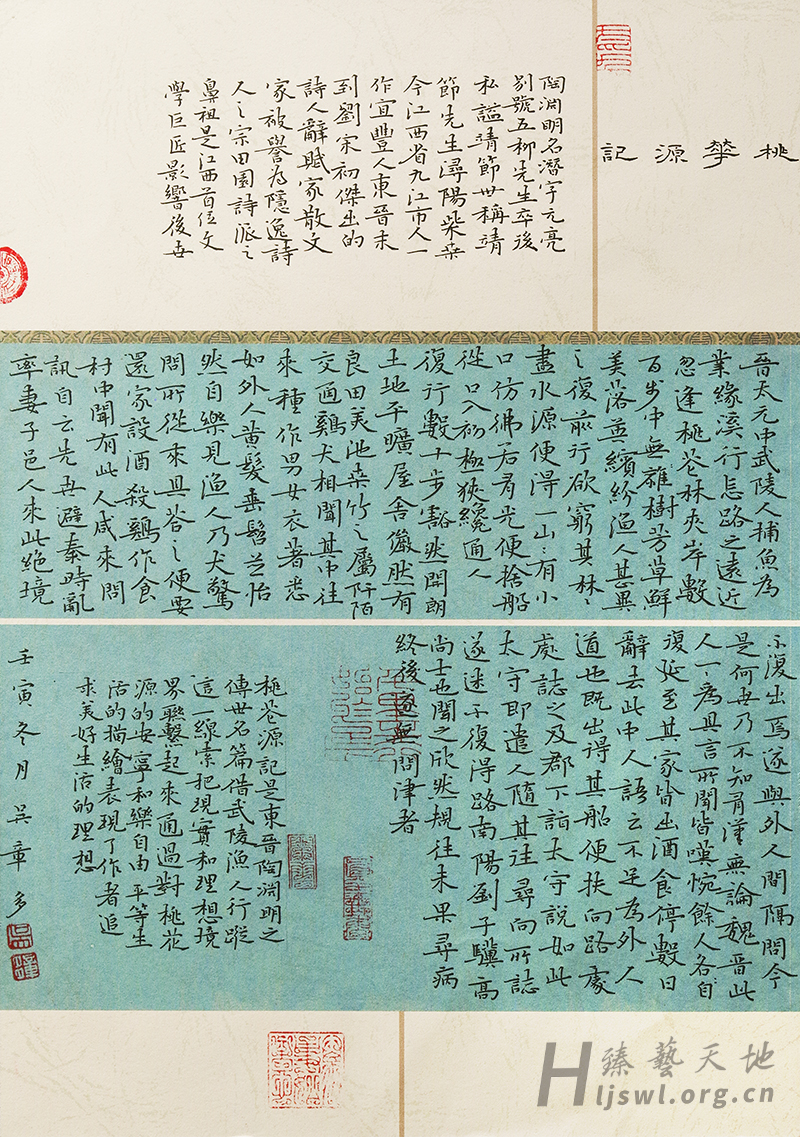 桃華源記
陶淵明名潛字元亮
別號五柳先生卒後
私謚靖節世稱靖
節先生潯陽柴桑
今江西省九江市人一
作宜豐人東晉末
到劉宋初傑出的
詩人辭賦家散文
家被譽為隱逸詩
人之宗田園詩派之
鼻祖是江西首位文
學巨匠影響後世
晉太元中武陵人捕魚為
業緣溪行忘路之遠近
忽逢桃花林夾岸數
百步中無雜樹芳草鮮
美落英繽紛漁人甚異
之復前行欲窮其林〻
盡水源便得一山〻有小
口仿佛若有光便捨船
從口入初極狹纔通人
復行數十步豁然開朗
土地平曠屋舍儼然有
良田美池桑竹之屬阡陌
交通雞犬相聞其中往
來種作男女衣著悉
如外人黃髮垂髫並怡
然自樂見漁人乃大驚
問所從來具答之便要
還家設酒殺雞作食
村中聞有此人咸來問
訊自云先世避秦時亂
率妻子邑人來此絕境
不復出焉遂與外人間隔問今
是何世乃不知有漢無論魏晉此
人一一為具言所聞皆嘆惋餘人各自
復延至其家皆出酒食停數日
辭去此中人語云不足為外人
道也既出得其船便扶向路處
處誌之及郡下詣太守說如此
太守即遣人隨其往尋向所誌
遂迷不復得路南陽劉子驥高
尚士也聞之欣然規往未果尋病
終後遂無問津者
桃花源記是東晉陶淵明之
傳世名篇借武陵漁人行蹤
這一線索把現實和理想境
界聯繫起來通過對桃花
源的安寧和樂自由平等生
活的描繪表現了作者追
求美好生活的理想
壬寅冬月吳章多
臻藝天地
Hljswl.org.cn